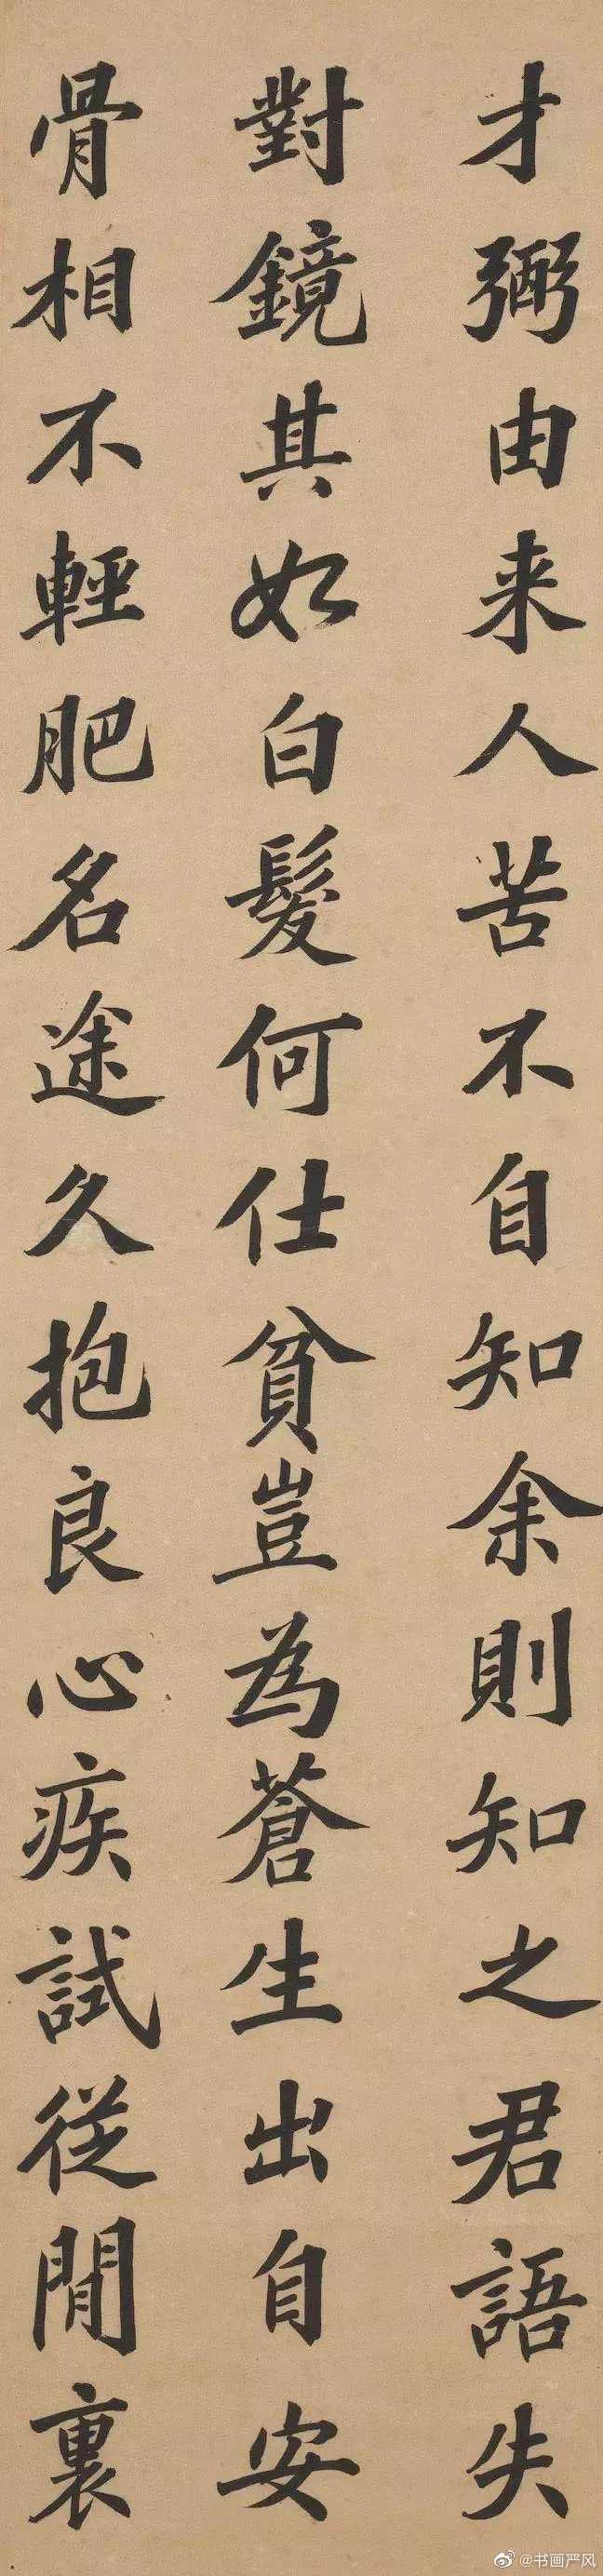 才弼由来人苦不自知余則知之君語失
對鏡其如白髮何仕貧豈為蒼生出自安
骨相不輕肥名途久抱良心疾試從閒裏
@书画严风